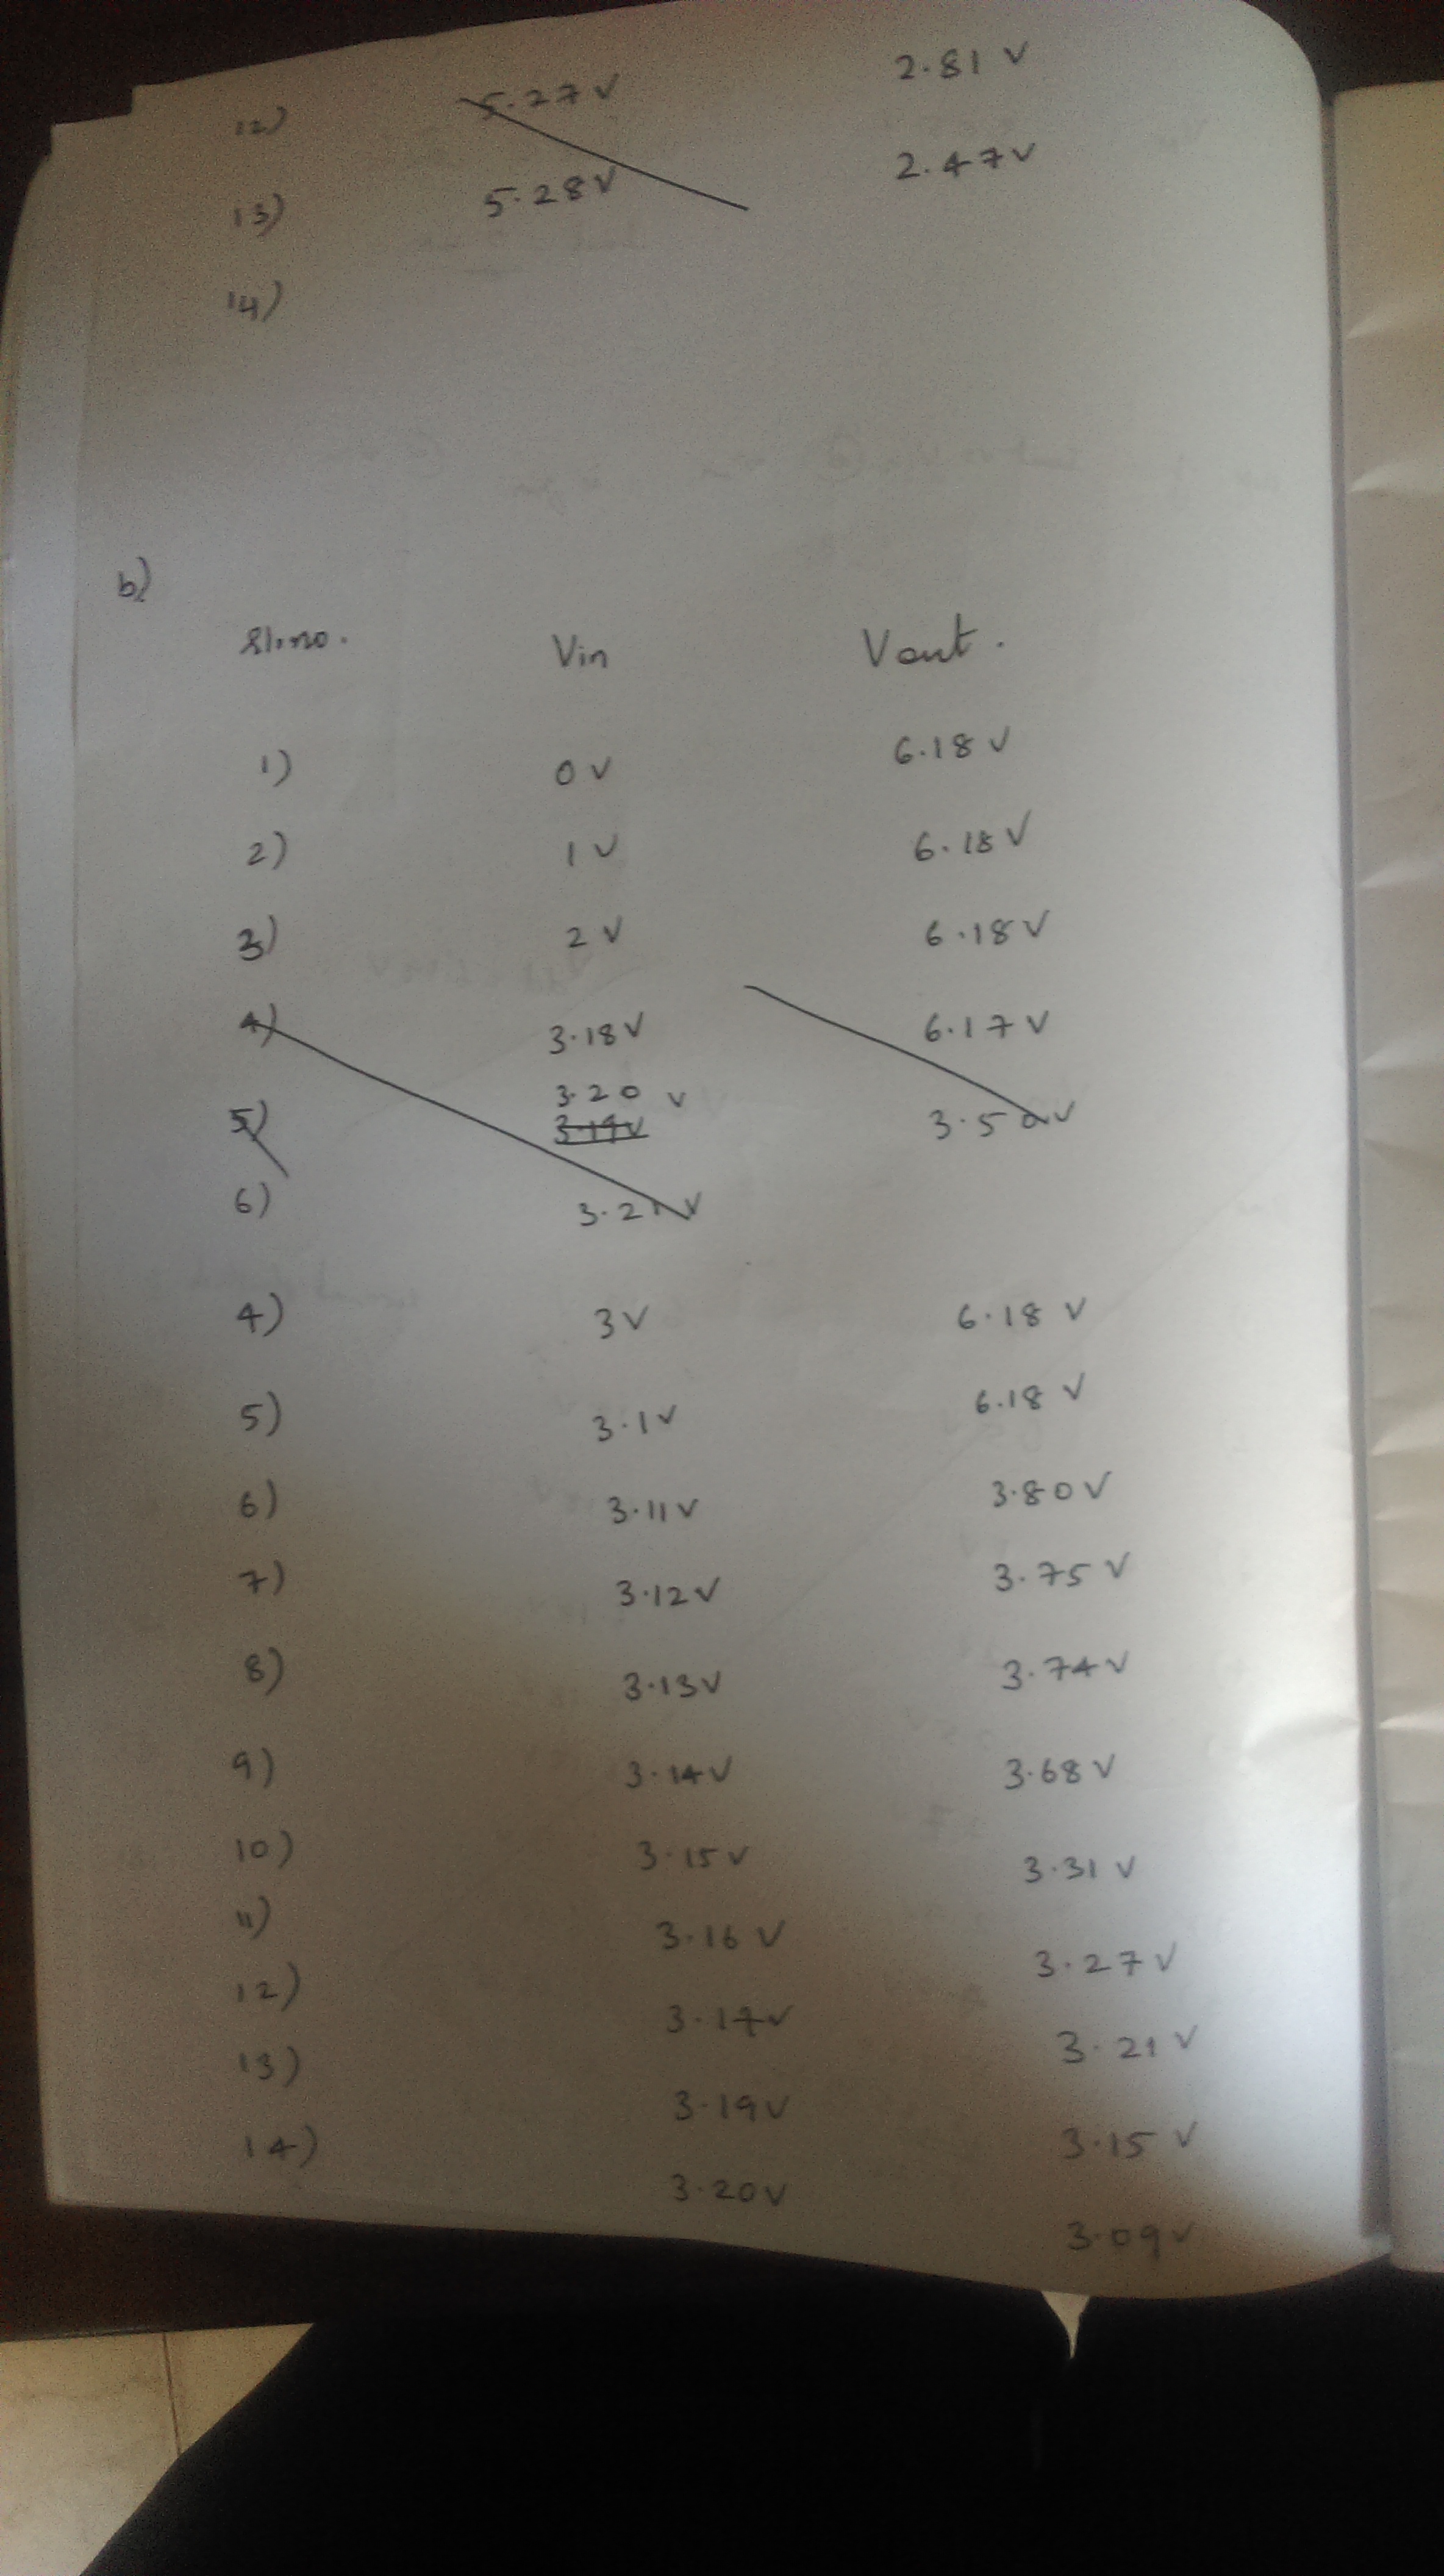 12) 5.27V 2.81 V
13) 5.28V 2.47V
14)
b)
Sl.no. Vin Vout.
1) 0V 6.18V
2) 1V 6.18V
3) 2V 6.18V
4) 3.18V 6.17V
3.20 V
5) 3.19V 3.50V
6) 3.21V
4) 3V 6.18 V
5) 3.1V 6.18 V
6) 3.11V 3.80V
7) 3.12V 3.75V
8) 3.13V 3.74V
9) 3.14V 3.68V
10) 3.15V 3.31V
11) 3.16V 3.27V
12) 3.17V 3.21V
13) 3.19V 3.15V
14) 3.20V 3.09V